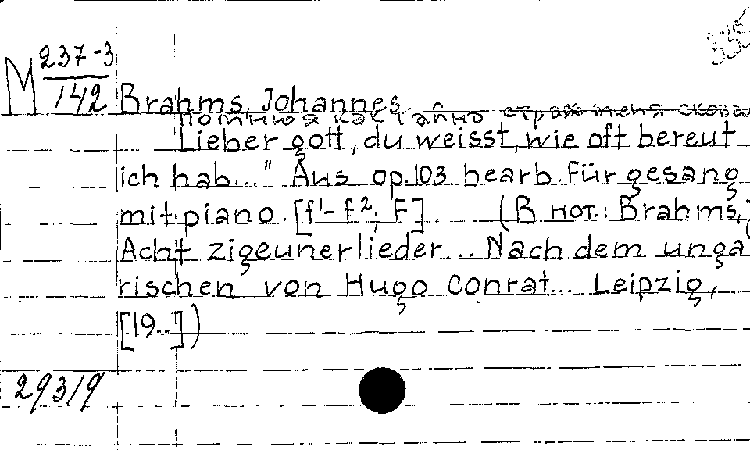 M 237-3
142
Brahms, Johannes.
Помнишь как тайно страх меня сковы
"Lieber gott, du weisst, wie oft bereut
ich hab..." Aus op. 103 bearb. für gesang
mit piano. [f¹-f², F]. (В нот.: Brahms, J
Acht zigeunerlieder... Nach dem unga
rischen von Hugo Conrat... Leipzig,
[19..])
293/9